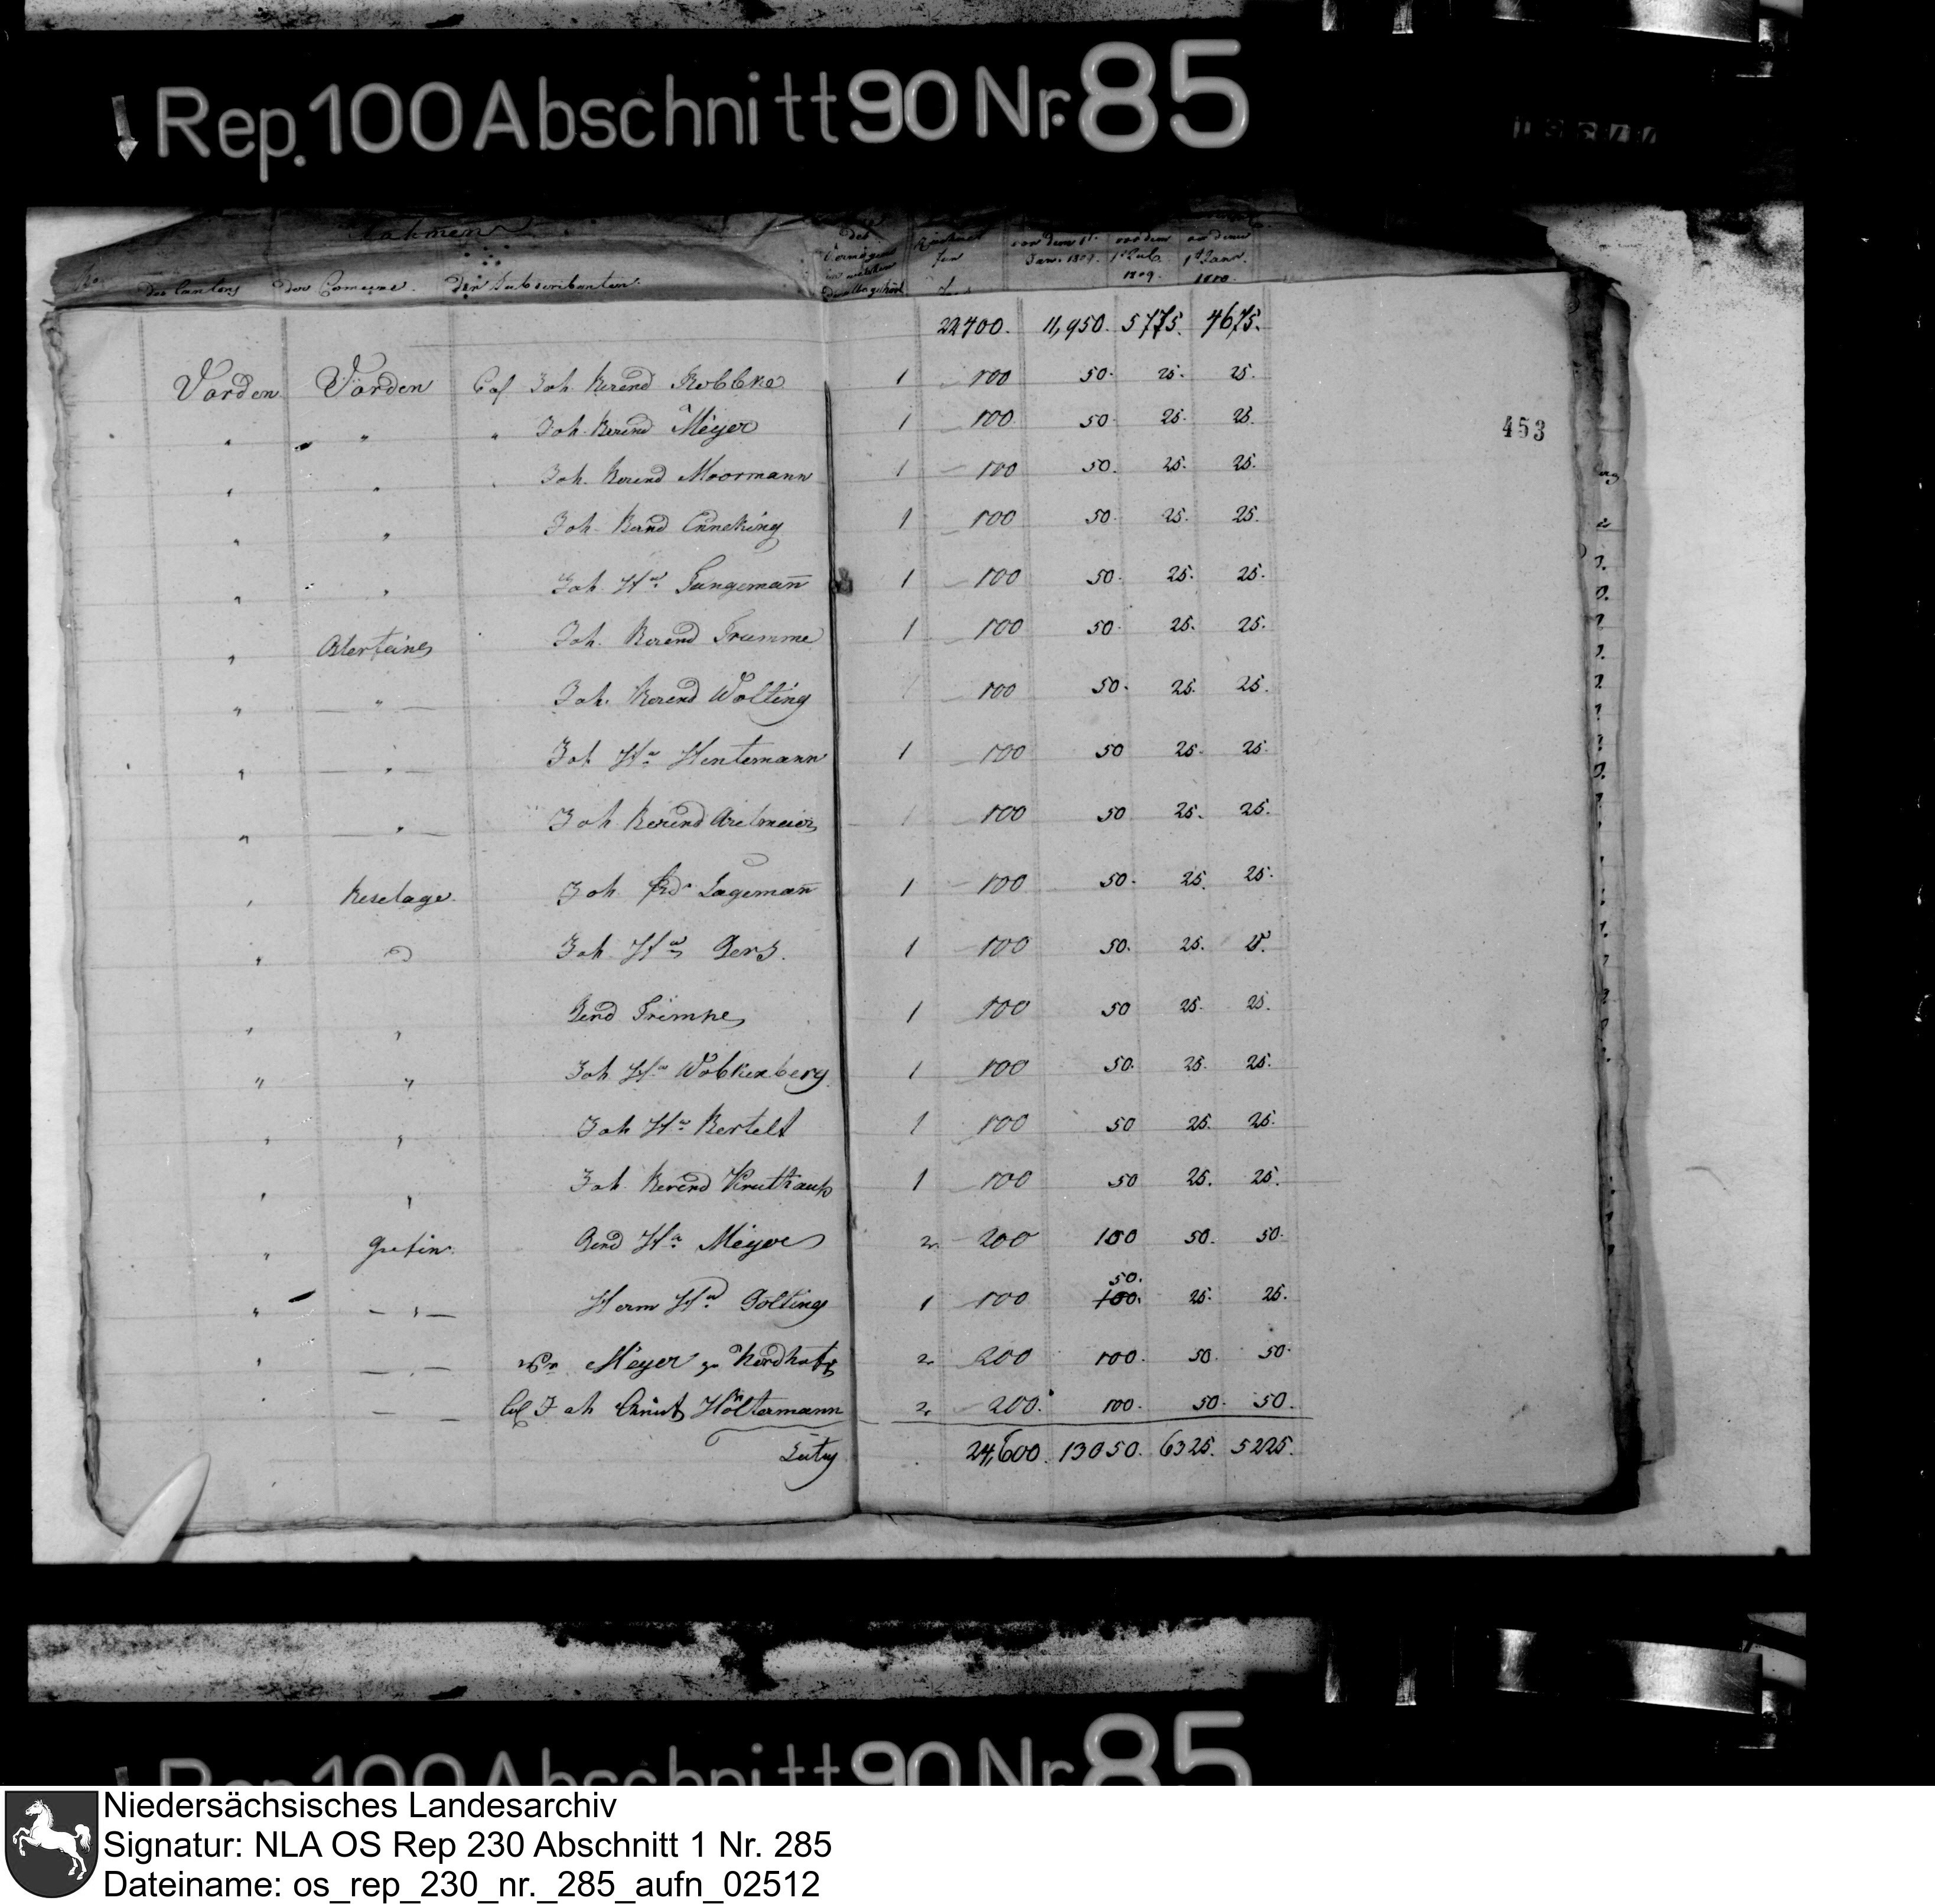 Rep. 100 Abschnitt 90 Nr. 85
Nahmen
No. des Cantons der Comeine. der Subscribenten
des Vermögens
für
vor dem 1t. Jan. 1809.
vor dem 1t Jul. 1809.
vor dem 1t Janr. 1810.
22400. 11,950. 5775. 4675.
Vorden Vörden Col Joh. Berend Robbke 1 100 50. 25. 25.
" " " Joh. Berend Meyer 1 100. 50. 25. 25.
" " Joh. Berend Moormann 1 100 50. 25. 25.
" " Joh. Bernd Enneking 1 100 50. 25. 25.
" " Joh. Hn. Langeman̄ 1 100 50. 25. 25.
" Joh. Berend Trumme 1 100 50. 25. 25.
" " Joh. Berend Wölting 1 100 50. 25. 25.
" " Joh Hn. Hentemann 1 100 50 25. 25.
" " Joh Berend 1 100 50 25. 25.
" Keselage. Joh Lageman̄ 1 100 50. 25. 25.
" Joh. Hn 1 100 50. 25. 25.
" " Bend Trimpe 1 100 50 25. 25.
" " Joh Hn Wobkenberg 1 100 50. 25. 25.
" " Joh Hn. Bertelt 1 100 50 25. 25.
" " Joh. Berend 1 100 50 25. 25.
" Bend Hn. Meyer 2. 200 100 50. 50.
50.
" " Herm Hn. Gölting 1 100 100. 25. 25.
" Meyer zu 2. 200 100. 50. 50.
Col Joh Christ Höltermann 2. 200. 100. 50. 50.
Latus 24,600. 13050. 6325. 5225.
453
Rep. 100 Abschnitt 90 Nr 85
Niedersächsisches Landesarchiv
Signatur: NLA OS Rep 230 Abschnitt 1 Nr. 285
Dateiname: os_rep_230_nr._285_aufn_02512